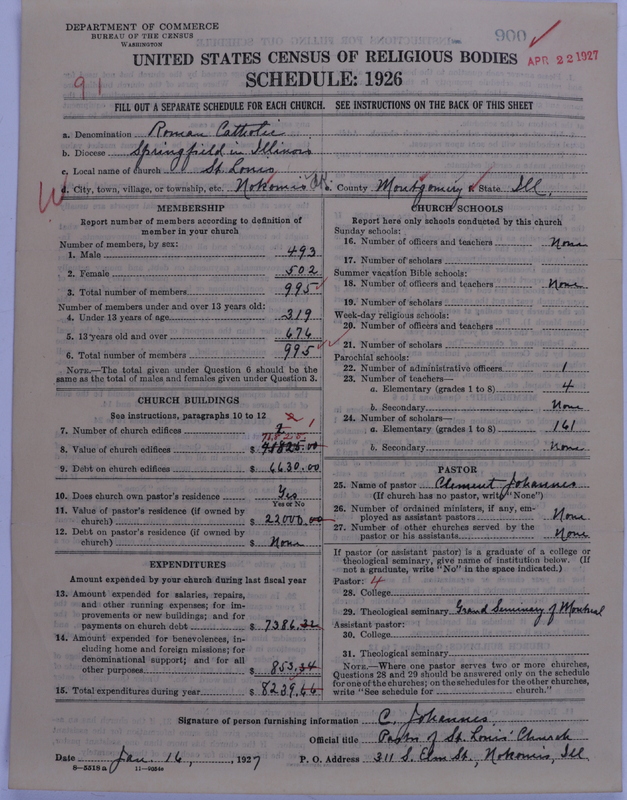 DEPARTMENT OF COMMERCE
BUREAU OF THE CENSUS
WASHINGTON
900
APR 22 1927
UNITED STATES CENSUS OF RELIGIOUS BODIES
SCHEDULE: 1926
91
FILL OUT A SEPARATE SCHEDULE FOR EACH CHURCH. SEE INSTRUCTIONS ON THE BACK OF THIS SHEET
a. Denomination Roman Catholic
b. Diocese Springfield in Illinois
c. Local name of church St. Louis
d. City, town, village, or township, etc. Nokomis e. County Montgomery State Ill.
MEMBERSHIP
Report number of members according to definition of member in your church
Number of members, by sex:
1. Male 493
2. Female 502
3. Total number of members 995
Number of members under and over 13 years old:
4. Under 13 years of age 319
5. 13 years old and over 676
6. Total number of members 995
NOTE.—The total given under Question 6 should be
same as the total of males and females given under Question 3.
CHURCH BUILDINGS
See instructions, paragraphs 10 to 12
7. Number of church edifices 1
8. Value of church edifices $ 71825.00
9. Debt on church edifices $ 6630.00
10. Does church own pastor's residence Yes
Yes or No
11. Value of pastor's residence (if owned by
church) $ 22000.00
12. Debt on pastor's residence (if owned by
church) $ None
EXPENDITURES
Amount expended by your church during last fiscal year
13. Amount expended for salaries, repairs,
and other running expenses; for im-
provements or new buildings; and for
payments on church debt $ 7386.32
14. Amount expended for benevolences, in-
cluding home and foreign missions; for
denominational support; and for all
other purposes $ 853.34
15. Total expenditures during year $ 8239.66
CHURCH SCHOOLS
Report here only schools conducted by this church
Sunday schools:
16. Number of officers and teachers None
17. Number of scholars
Summer vacation Bible schools:
18. Number of officers and teachers None
19. Number of scholars
Week-day religious schools:
20. Number of officers and teachers
21. Number of scholars
Parochial schools:
22. Number of administrative officers 1
23. Number of teachers—
a. Elementary (grades 1 to 8) 4
b. Secondary None
24. Number of scholars—
a. Elementary (grades 1 to 8) 161
b. Secondary None
PASTOR
25. Name of pastor Clement Johannes
(If church has no pastor, write "None")
26. Number of ordained ministers, if any, em-
ployed as assistant pastors None
27. Number of other churches served by the
pastor or his assistants None
If pastor (or assistant pastor) is a graduate of a college or
theological seminary, give name of institution below. (If
not a graduate, write "No" in the space indicated.)
Pastor: 4
28. College
29. Theological seminary Grand Seminary of Montreal
Assistant pastor:
30. College
31. Theological seminary
NOTE.—Where one pastor serves two or more churches,
Questions 28 and 29 should be answered only on the schedule
for one of the churches; on the schedules for the other churches,
write "See schedule for church."
Signature of person furnishing information C. Johannes
Official title Pastor of St. Louis' Church
Date Jan. 16, 1927 P. O. Address 311 S. Elm St., Nokomis, Ill
8—5518 a